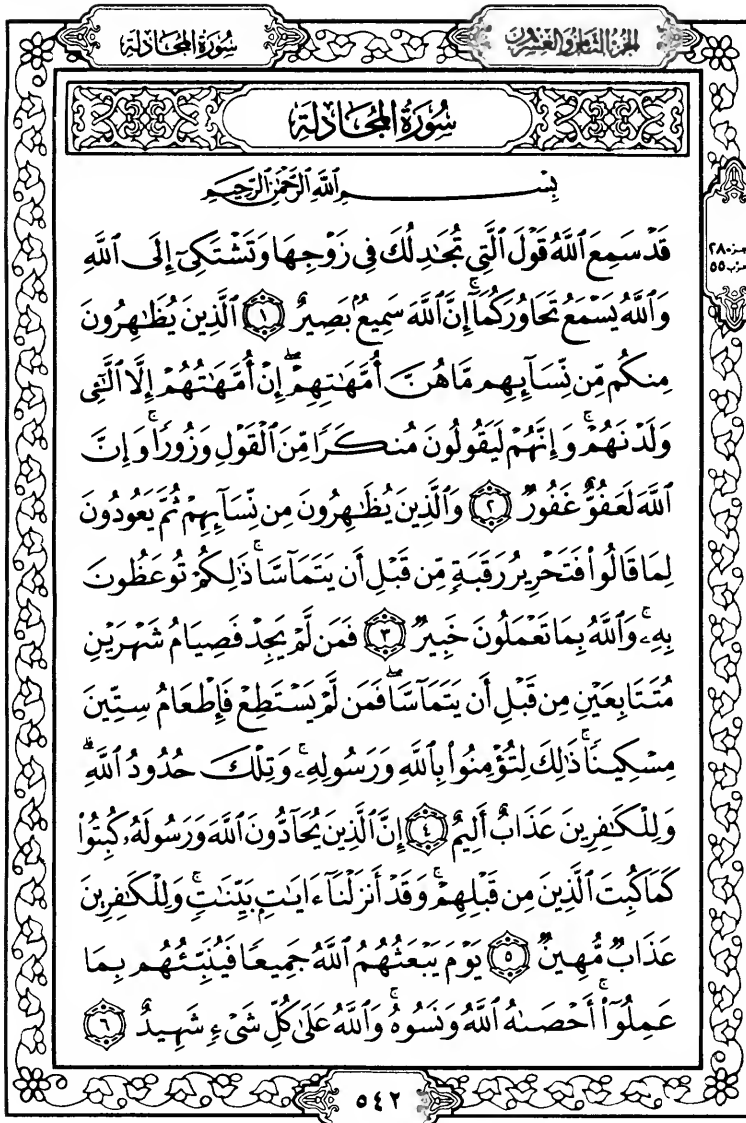 الجزء الثامن والعشرون
سُورَةُ المُجَادلة
سُورَةُ المُجَادلة
بِسْمِ ٱللَّهِ ٱلرَّحْمَٰنِ ٱلرَّحِيمِ
قَدْ سَمِعَ ٱللَّهُ قَوْلَ ٱلَّتِي تُجَٰدِلُكَ فِي زَوْجِهَا وَتَشْتَكِيٓ إِلَى ٱللَّهِ
وَٱللَّهُ يَسْمَعُ تَحَاوُرَكُمَآۚ إِنَّ ٱللَّهَ سَمِيعُۢ بَصِيرٌ ١ ٱلَّذِينَ يُظَٰهِرُونَ
مِنكُم مِّن نِّسَآئِهِم مَّا هُنَّ أُمَّهَٰتِهِمْۖ إِنْ أُمَّهَٰتُهُمْ إِلَّا ٱلَّٰٓـِٔي
وَلَدْنَهُمْۚ وَإِنَّهُمْ لَيَقُولُونَ مُنكَرًا مِّنَ ٱلْقَوْلِ وَزُورًاۚ وَإِنَّ
ٱللَّهَ لَعَفُوٌّ غَفُورٌ ٢ وَٱلَّذِينَ يُظَٰهِرُونَ مِن نِّسَآئِهِمْ ثُمَّ يَعُودُونَ
لِمَا قَالُوا۟ فَتَحْرِيرُ رَقَبَةٍ مِّن قَبْلِ أَن يَتَمَآسَّاۚ ذَٰلِكُمْ تُوعَظُونَ
بِهِۦۚ وَٱللَّهُ بِمَا تَعْمَلُونَ خَبِيرٌ ٣ فَمَن لَّمْ يَجِدْ فَصِيَامُ شَهْرَيْنِ
مُتَتَابِعَيْنِ مِن قَبْلِ أَن يَتَمَآسَّاۖ فَمَن لَّمْ يَسْتَطِعْ فَإِطْعَامُ سِتِّينَ
مِسْكِينًاۚ ذَٰلِكَ لِتُؤْمِنُوا۟ بِٱللَّهِ وَرَسُولِهِۦۚ وَتِلْكَ حُدُودُ ٱللَّهِۗ
وَلِلْكَٰفِرِينَ عَذَابٌ أَلِيمٌ ٤ إِنَّ ٱلَّذِينَ يُحَآدُّونَ ٱللَّهَ وَرَسُولَهُۥ كُبِتُوا۟
كَمَا كُبِتَ ٱلَّذِينَ مِن قَبْلِهِمْۚ وَقَدْ أَنزَلْنَآ ءَايَٰتٍۭ بَيِّنَٰتٍۚ وَلِلْكَٰفِرِينَ
عَذَابٌ مُّهِينٌ ٥ يَوْمَ يَبْعَثُهُمُ ٱللَّهُ جَمِيعًا فَيُنَبِّئُهُم بِمَا
عَمِلُوٓا۟ۚ أَحْصَىٰهُ ٱللَّهُ وَنَسُوهُۚ وَٱللَّهُ عَلَىٰ كُلِّ شَيْءٍ شَهِيدٌ ٦
جزء ٢٨
حزب ٥٥
٥٤٢